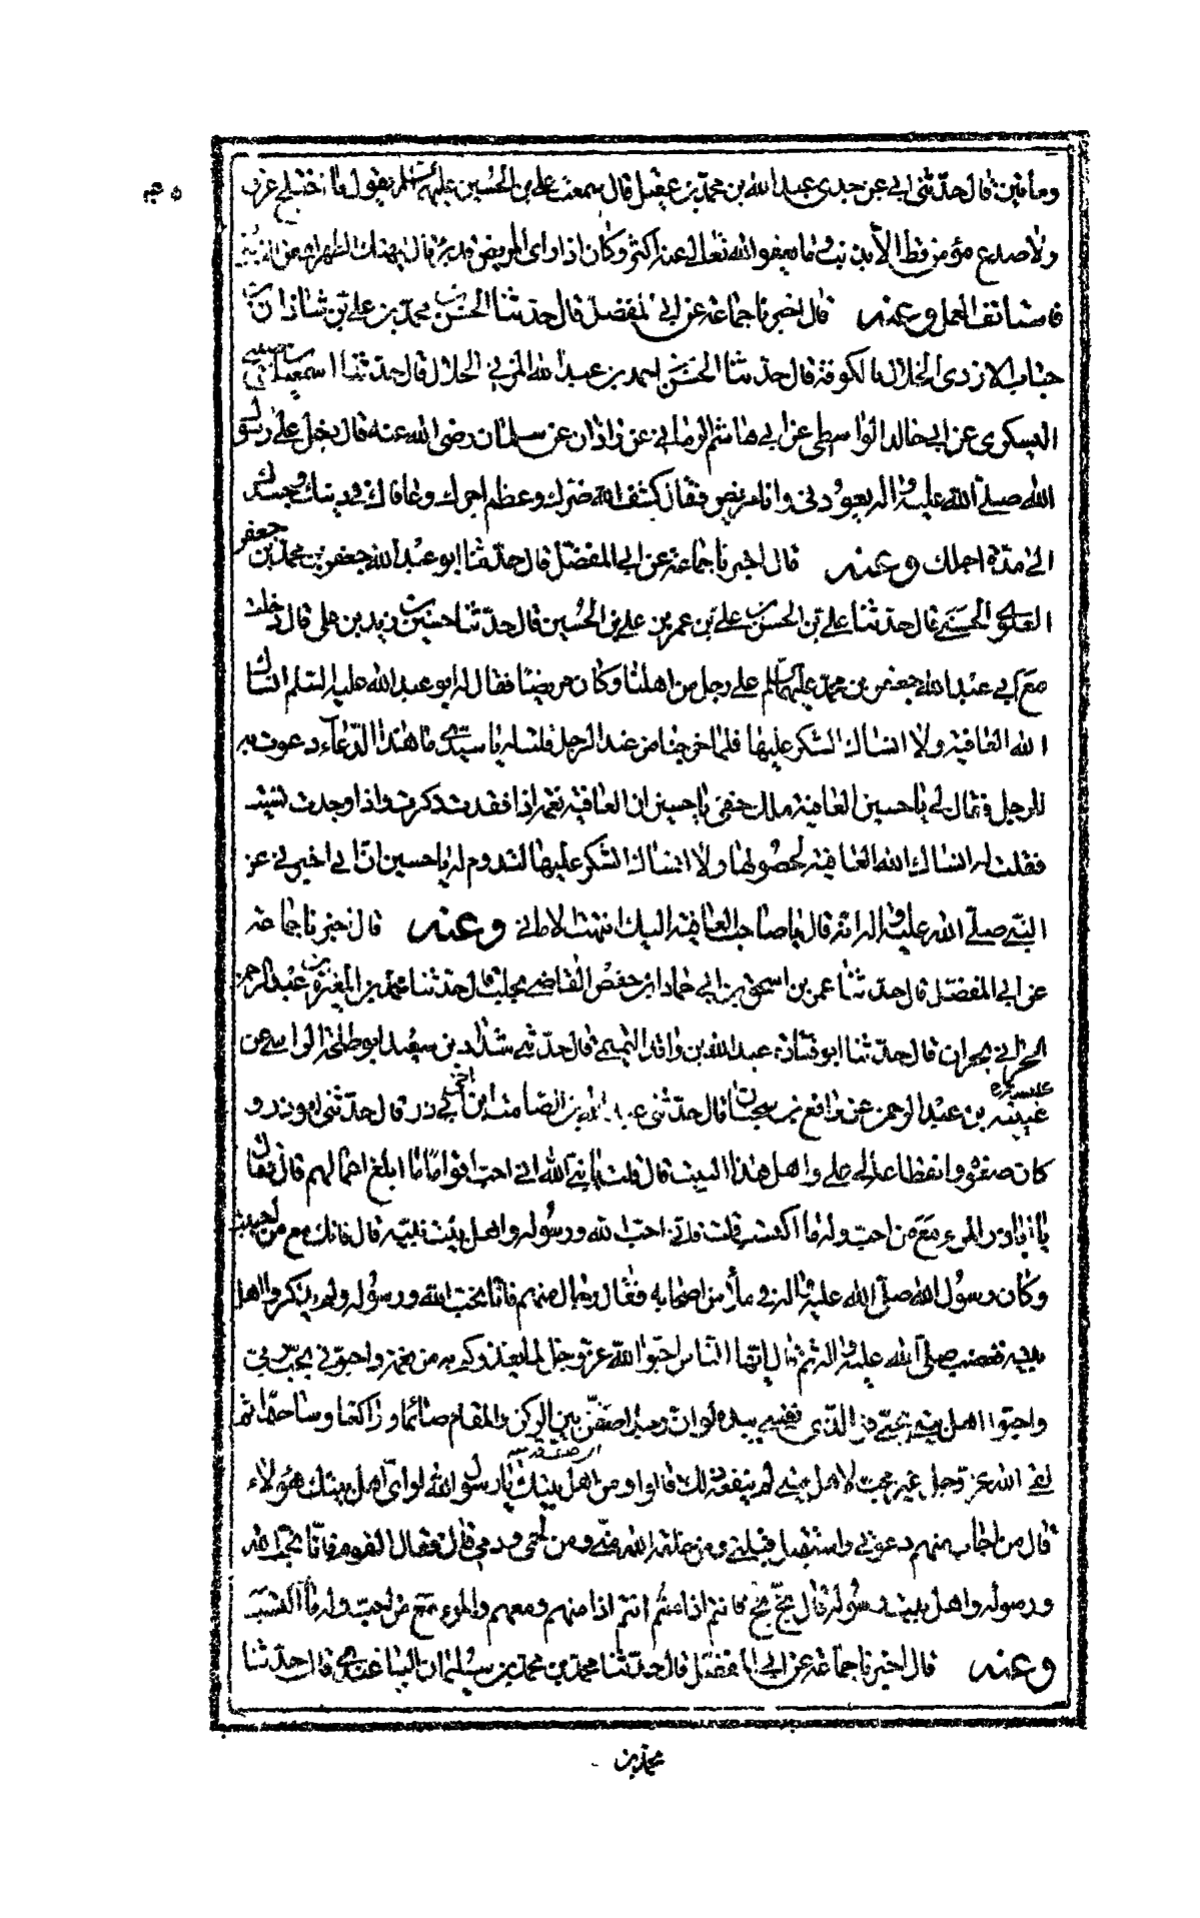 ومأتين قال حدثنى ابى عن جدى عبد الله بن محمد بن عقيل قال سمعت على بن الحسين عليهما السلم يقول ما اختلج عرق
ولا صدع مؤمن قط الا بذنبه وما يعفو الله تعالى عنه اكثر وكان اذا راى المريض قد برئ قال ليهنك الطهر من الذنوب
فاستانف العمل وعنه قال اخبرنا جماعة عن ابى المفضل قال حدثنا الحسن بن محمد بن على بن شاذان بن
حباب الازدى الخلال بالكوفة قال حدثنا الحسن بن احمد بن عبد الله المزنى الخلال قال حدثنا اسمعيل بن
اليسكرى عن ابى خالد الواسطى عن ابى هاشم الرمانى عن زاذان عن سلمان رضى الله عنه قال دخل على رسول
الله صلى الله عليه واله يعودنى وانا مريض فقال كشف الله ضرك وعظم اجرك وعافاك فى دينك وجسدك
الى مدة اجلك وعنه قال اخبرنا جماعة عن ابى المفضل قال حدثنا ابو عبد الله جعفر بن محمد بن جعفر
العلوى الحسنى قال حدثنا على بن الحسن بن على بن عمر بن على بن الحسين قال حدثنا حسين بن زيد بن على قال دخلت
مع ابى عبد الله جعفر بن محمد عليهما السلم على رجل من اهلنا وكان مريضا فقال له ابو عبد الله عليه السلم انساك
الله العافية ولا انساك الشكر عليها فلما خرجنا من عند الرجل قلت له يا سيدى ما هذا الدعاء دعوت به
للرجل فقال لى يا حسين العافية ملك خفى يا حسين ان العافية نعمة اذا فقدت ذكرت واذا وجدت نسيت
فقلت له انساك الله العافية لحصولها ولا انساك الشكر عليها لتدوم له يا حسين ان ابى اخبرنى عن
النبى صلى الله عليه واله انه قال يا صاحب العافية اليك انتهت الامانى وعنه قال اخبرنا جماعة
عن ابى المفضل قال حدثنا عمر بن اسحق بن ابى حماد بن حفص القاضى بحلب قال حدثنا محمد بن المغيرة بن عبد الرحمن
الحرانى بحران قال حدثنا ابو قتادة عبد الله بن واقد التميمى قال حدثنى شداد بن سعيد ابو طلحة الراسبى عن
عيينة بن عبد الرحمن عن رافع بن سحبان قال حدثنى عبد الله بن الصامت ابن اخى ابى ذر قال حدثنى ابو ذر و
كان صغوه وانقطاعه الى على واهل هذا البيت قال قلت يا نبى الله انى احب اقواما ما ابلغ اعمالهم قال فقال
يا ابا ذر المرء مع من احب وله ما اكتسب قلت فانى احب الله ورسوله واهل بيت نبيه قال فانك مع من احببت
وكان رسول الله صلى الله عليه واله فى ملأ من اصحابه فقال رجال منهم فانا نحب الله ورسوله ولم يذكروا اهل
بيته فغضب صلى الله عليه واله ثم قال ايها الناس احبوا الله عز وجل لما يغذوكم به من نعمه واحبونى بحب ربى
واحبوا اهل بيتى بحبى فو الذى نفسى بيده لو ان رجلا صفن بين الركن والمقام صائما وراكعا وساجدا ثم
لقى الله عز وجل غير محب لاهل بيتى لم ينفعه ذلك قالوا ومن اهل بيتك يا رسول الله او اى اهل بيتك هؤلاء
قال من اجاب منهم دعوتى واستقبل قبلتى ومن خلقه الله منى ومن لحمى ودمى قال فقال القوم فانا نحب الله
ورسوله واهل بيت رسوله قال بخ بخ فانتم اذا منهم انتم اذا منهم ومعهم والمرء مع من احب وله ما اكتسب
وعنه قال اخبرنا جماعة عن ابى المفضل قال حدثنا محمد بن محمد بن سليمان الباغندى قال حدثنا
محمد بن